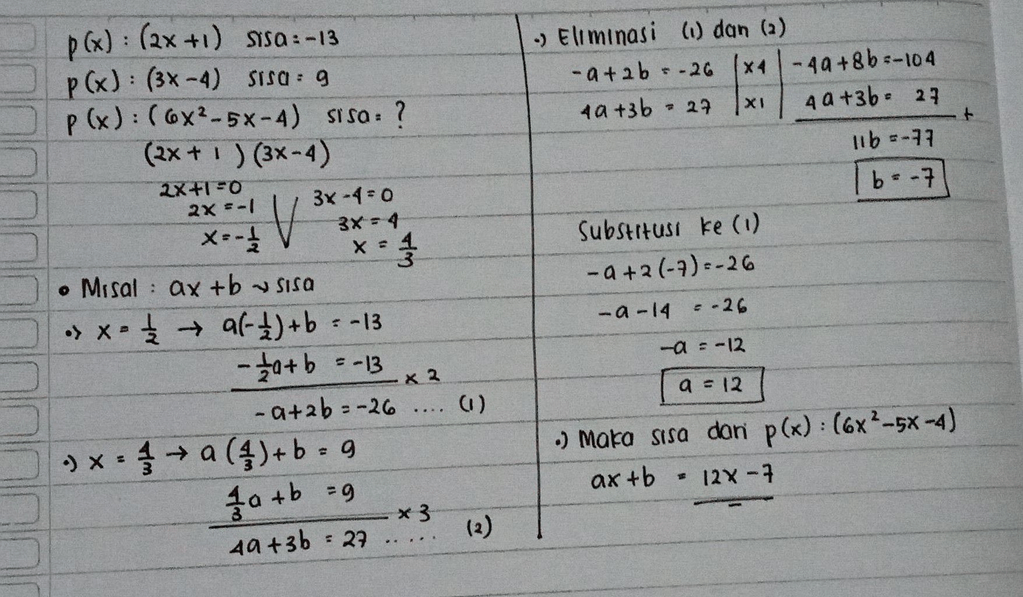 p(x) : (2x+1) sisa = -13
p(x) : (3x-4) sisa = 9
p(x) : (6x²-5x-4) sisa = ?
(2x+1)(3x-4)
2x+1=0 V 3x-4=0
2x=-1 3x=4
x=-1/2 x=4/3
• Misal : ax+b ~> sisa
•> x = 1/2 → a(-1/2)+b = -13
-1/2a+b = -13
x 2
-a+2b = -26 .... (1)
•) x = 4/3 → a(4/3)+b = 9
4/3a+b = 9
x 3
4a+3b = 27 ..... (2)
•) Eliminasi (1) dan (2)
-a+2b = -26 |x4| -4a+8b=-104
4a+3b = 27 |x1| 4a+3b= 27
+
11b = -77
b = -7
Substitusi ke (1)
-a+2(-7)=-26
-a-14 = -26
-a = -12
a = 12
•) Maka sisa dari p(x) : (6x²-5x-4)
ax+b = 12x-7